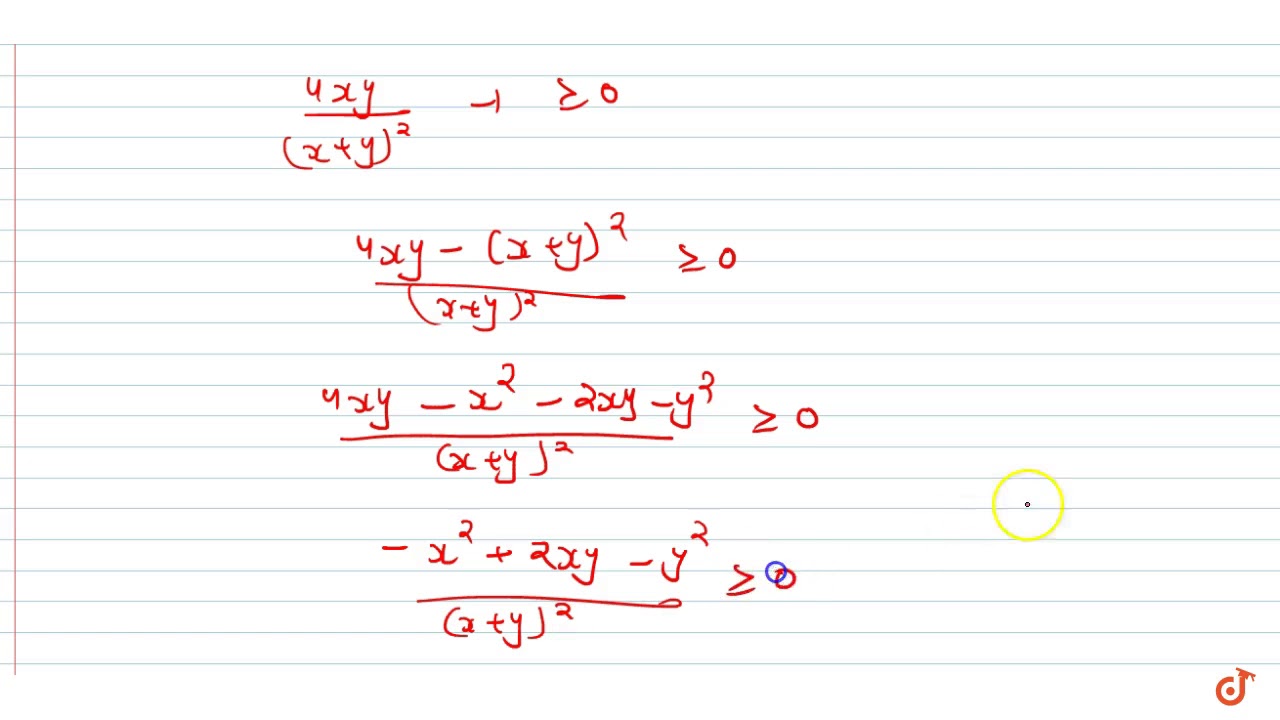 4xy/(x+y)² -1 ≥ 0
4xy - (x+y)²/(x+y)² ≥ 0
4xy - x² - 2xy - y²/(x+y)² ≥ 0
- x² + 2xy - y²/(x+y)² ≥ 0